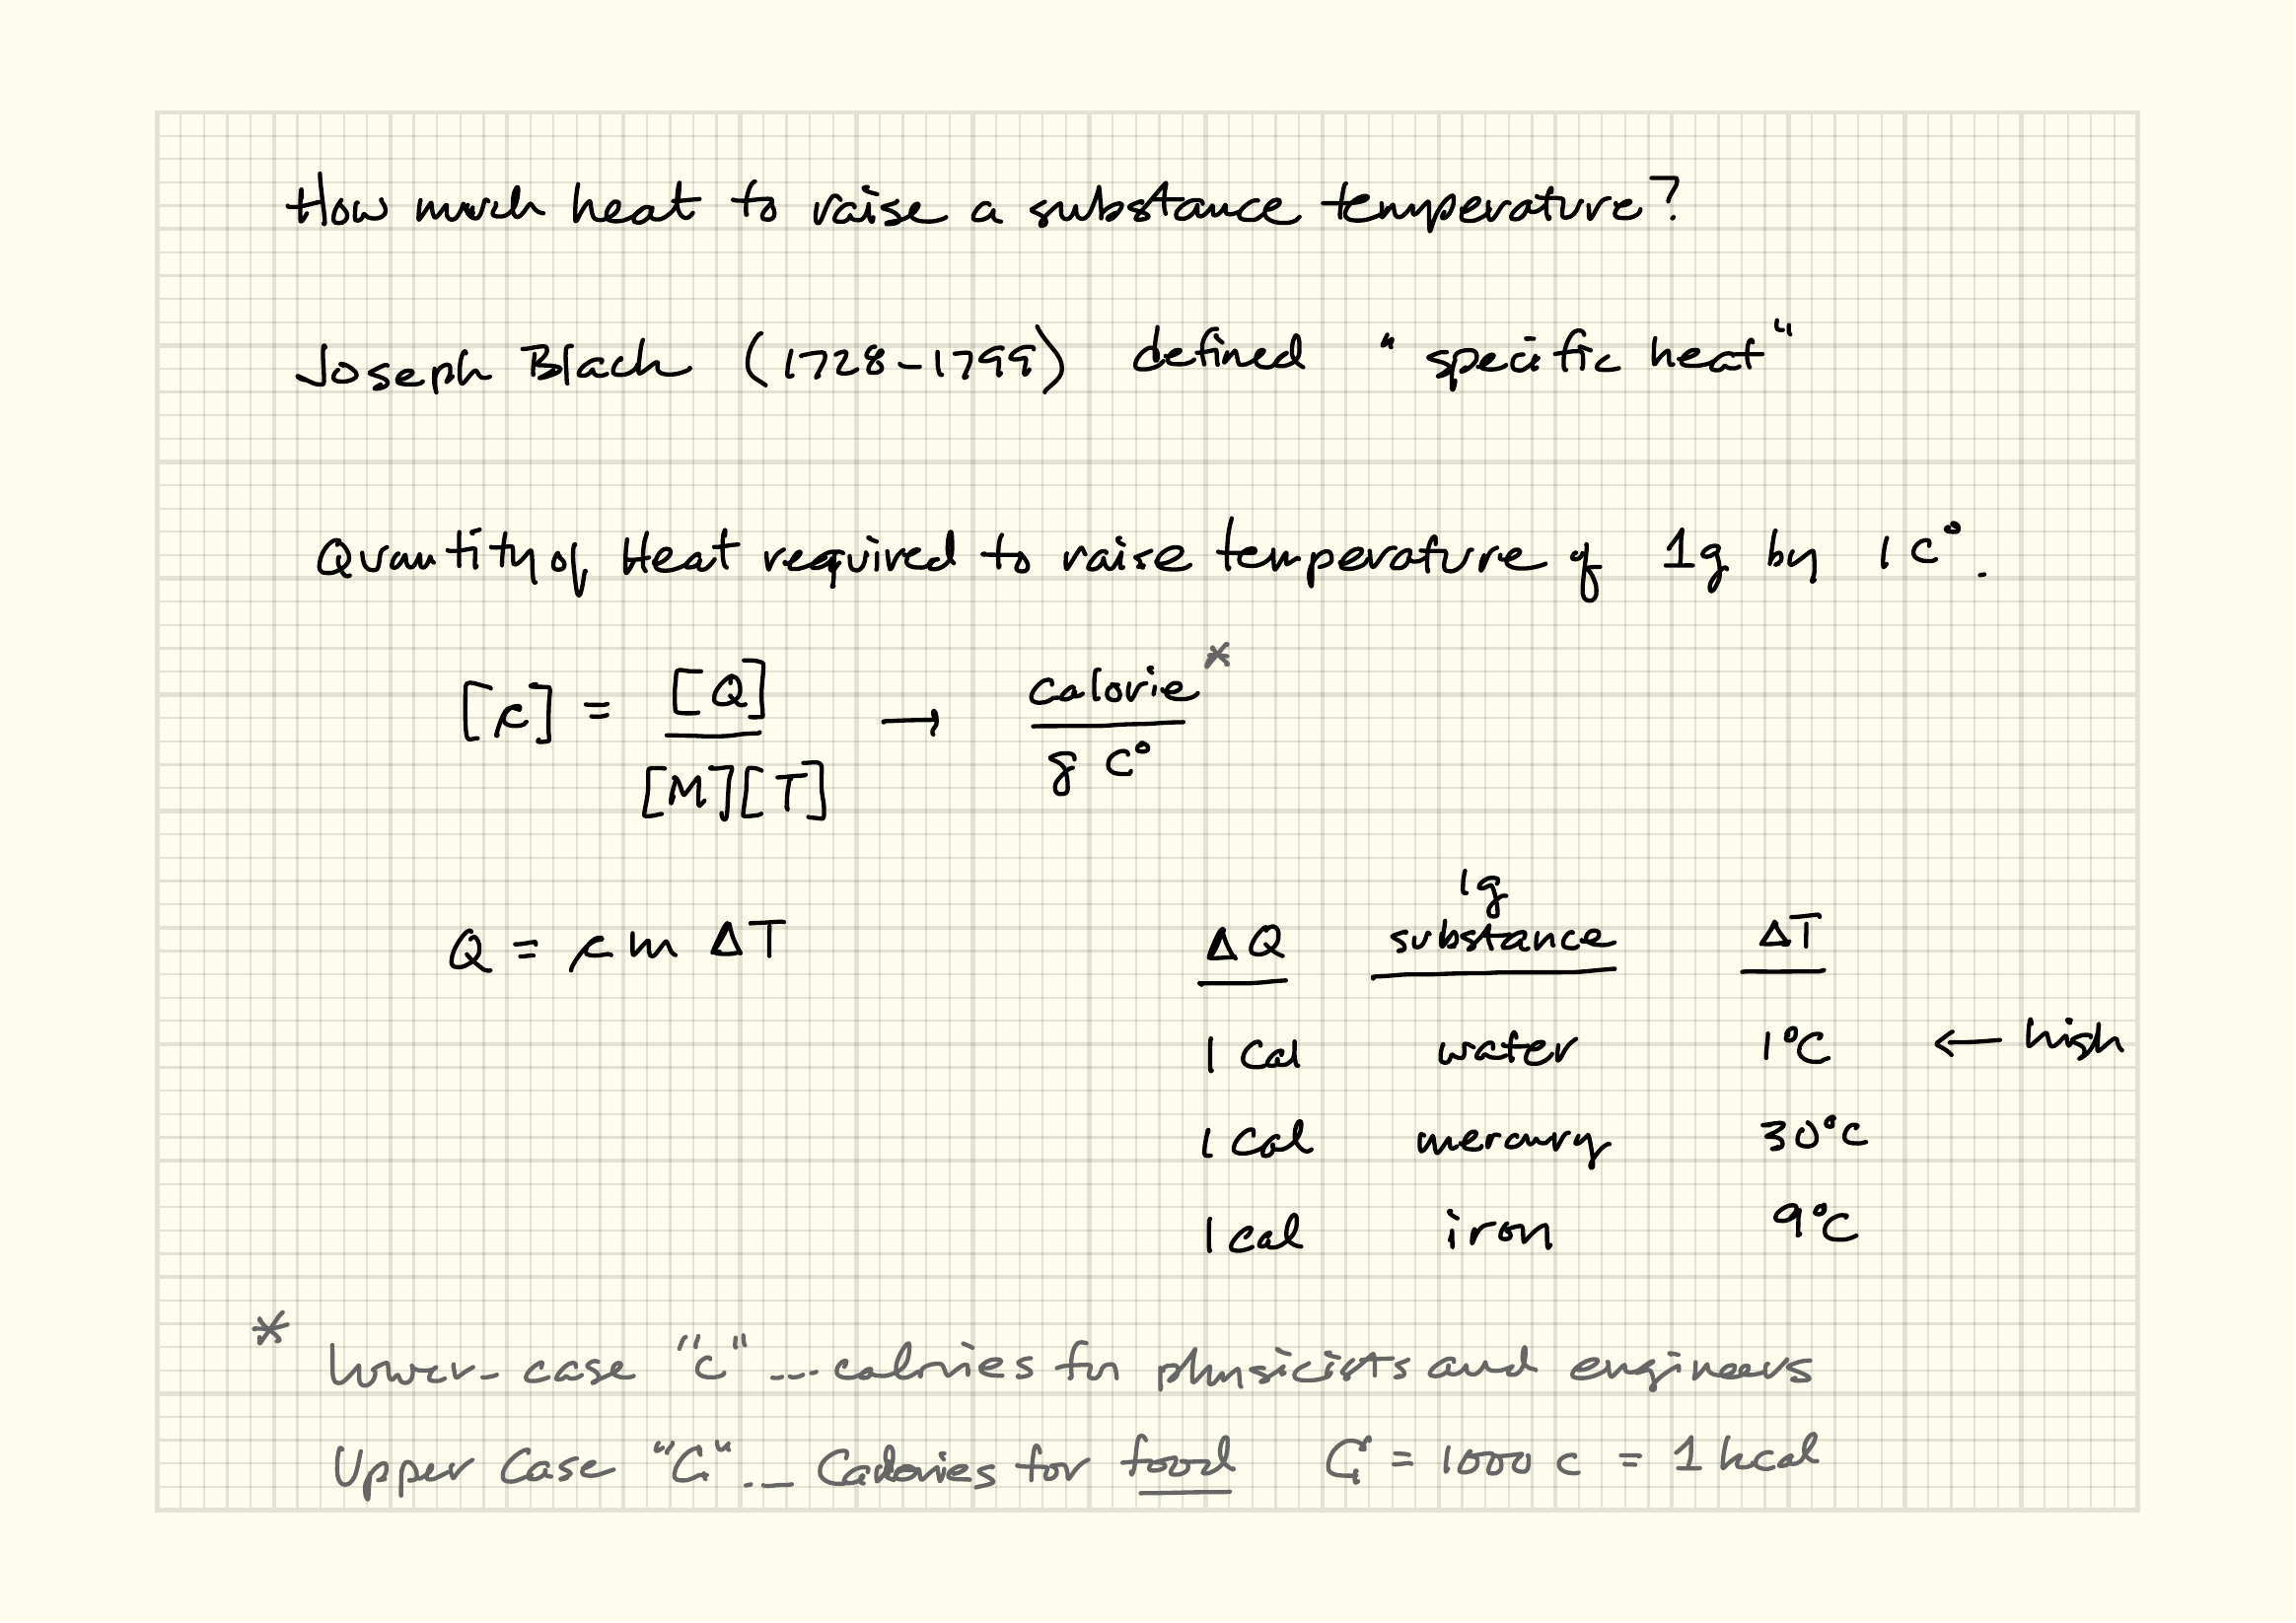 How much heat to raise a substance temperature?
Joseph Black (1728-1799) defined "specific heat"
Quantity of Heat required to raise temperature of 1g by 1 C°.
[c] = [Q] / [M][T] → calorie* / g C°
Q = c m ΔT
1g
ΔQ substance ΔT
1 Cal water 1°C ← high
1 Cal mercury 30°C
1 cal iron 9°C
* lower-case "c" ... calories for physicists and engineers
Upper Case "C" ... Calories for food C = 1000 c = 1 kcal